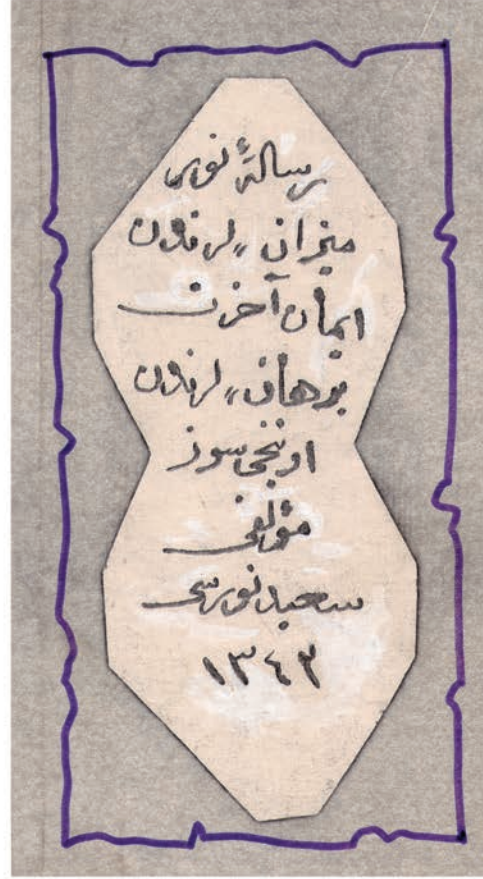 رسالۀ نوری
میزان‌لرندن
ایمان آخرت
برهان‌لرندن
اوننجی سوز
مؤلفی
سعید نورسی
١٣٤٣